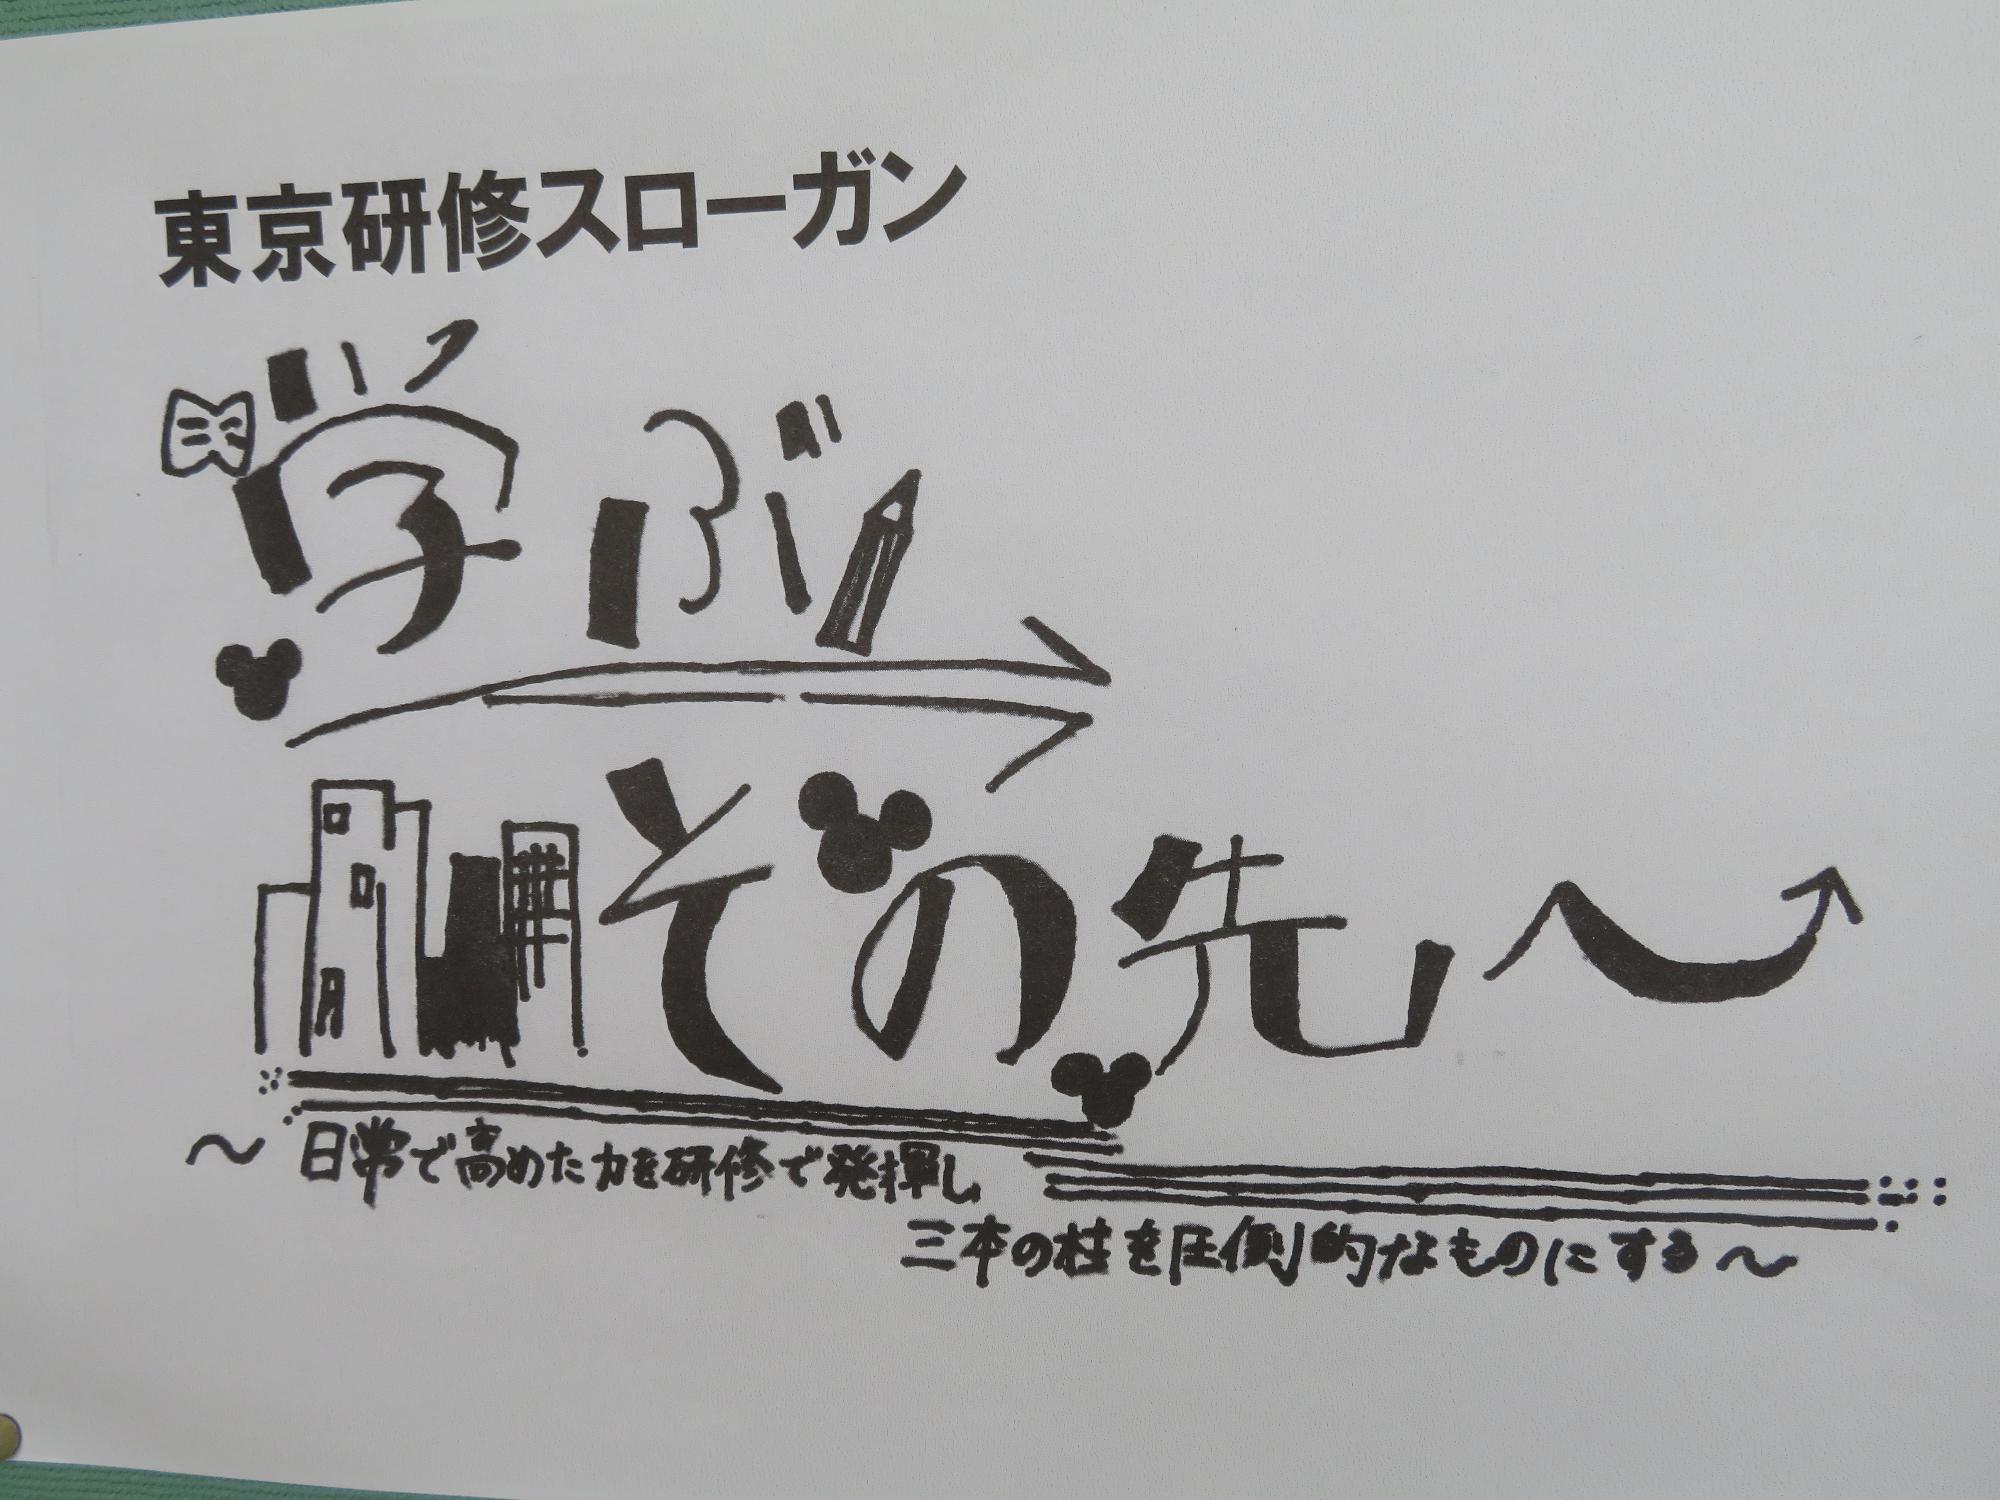 東京研修スローガン
学ぶ
その先〜
〜日常で高めた力を研修で発揮し
三本の柱を圧倒的なものにする〜